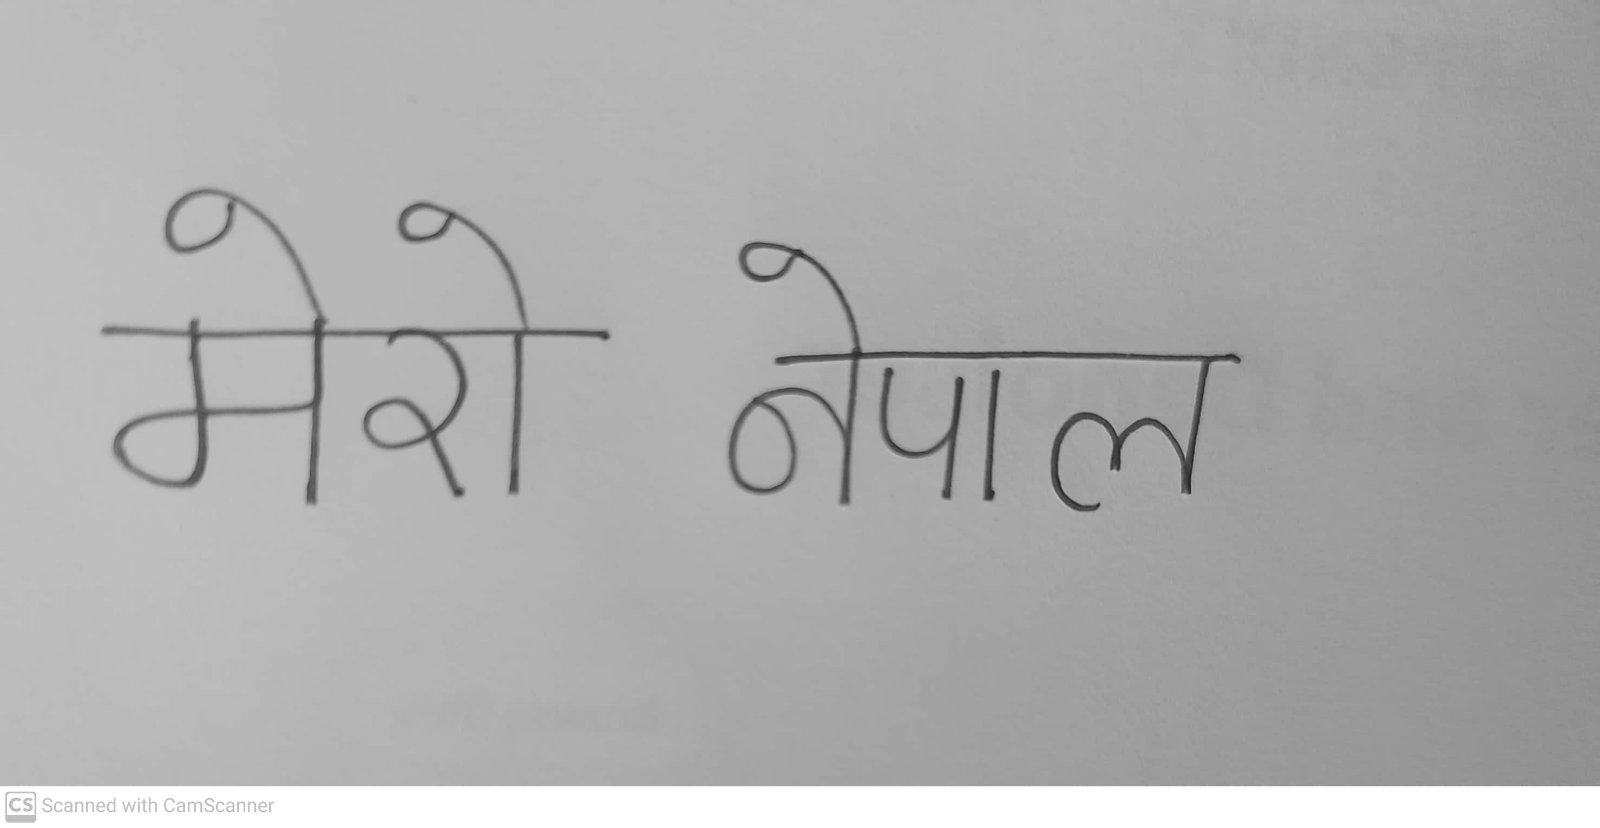 मेरो नेपाल
CS Scanned with CamScanner